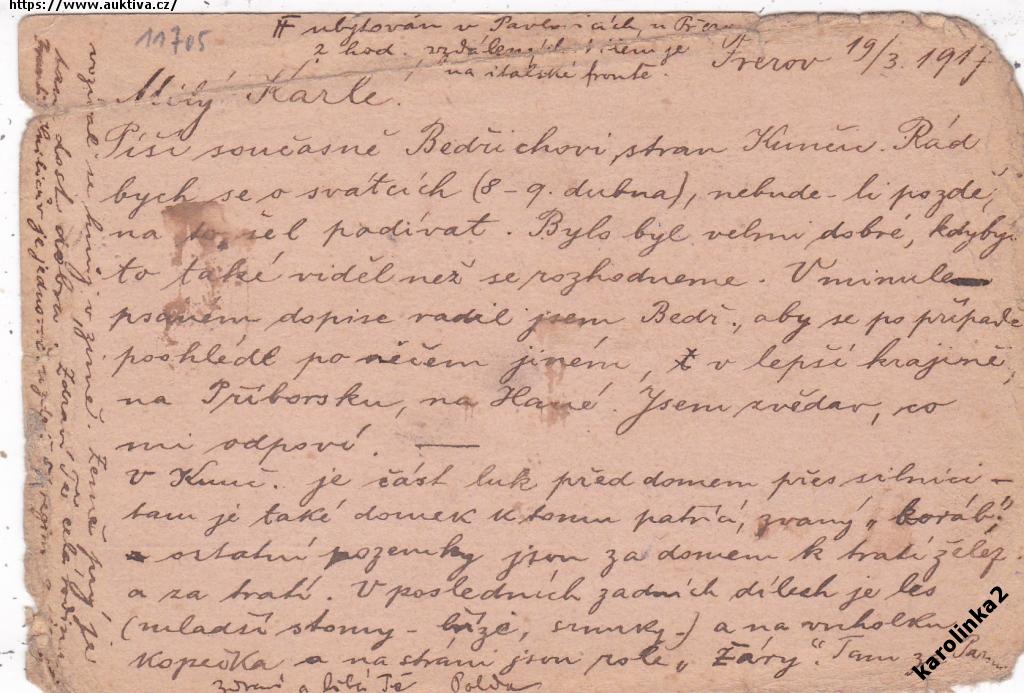 https://www.auktiva.cz/
11705
# ubytován v Pavlovicích, u Přerova
2 hod. vzdálených je
na italské frontě.
Přerov 19/3. 1917
Milý Karle.
Píši současně Bedřichovi stran Kunčic. Rád
bych se o svátcích (8-9. dubna), nebude-li pozdě,
na to šel podívat. Bylo byl velmi dobré, kdybys
to také viděl než se rozhodneme. V minule
psaném dopise radil jsem Bedř., aby se po případě
poohlédl po něčem jiném, v lepší krajině,
na Příborsku, na Hané. Jsem zvědav, co
mi odpoví. —
V Kunč. je část luk před domem přes silnici –
tam je také domek k tomu patřící, zvaný „koráb",
ostatní pozemky jsou za domem k trati želez.
a za tratí. V posledních zadních dílech je les
(mladší stromy - bříze, smrky -) a na vrcholku
kopečka a na stráni jsou role „Žáry". Tam
zdraví a líbá Tě Polda
hnůj v zimě. Země prý je
dost dobrá. Zdraví Tě celá rodina
je
karolinka2